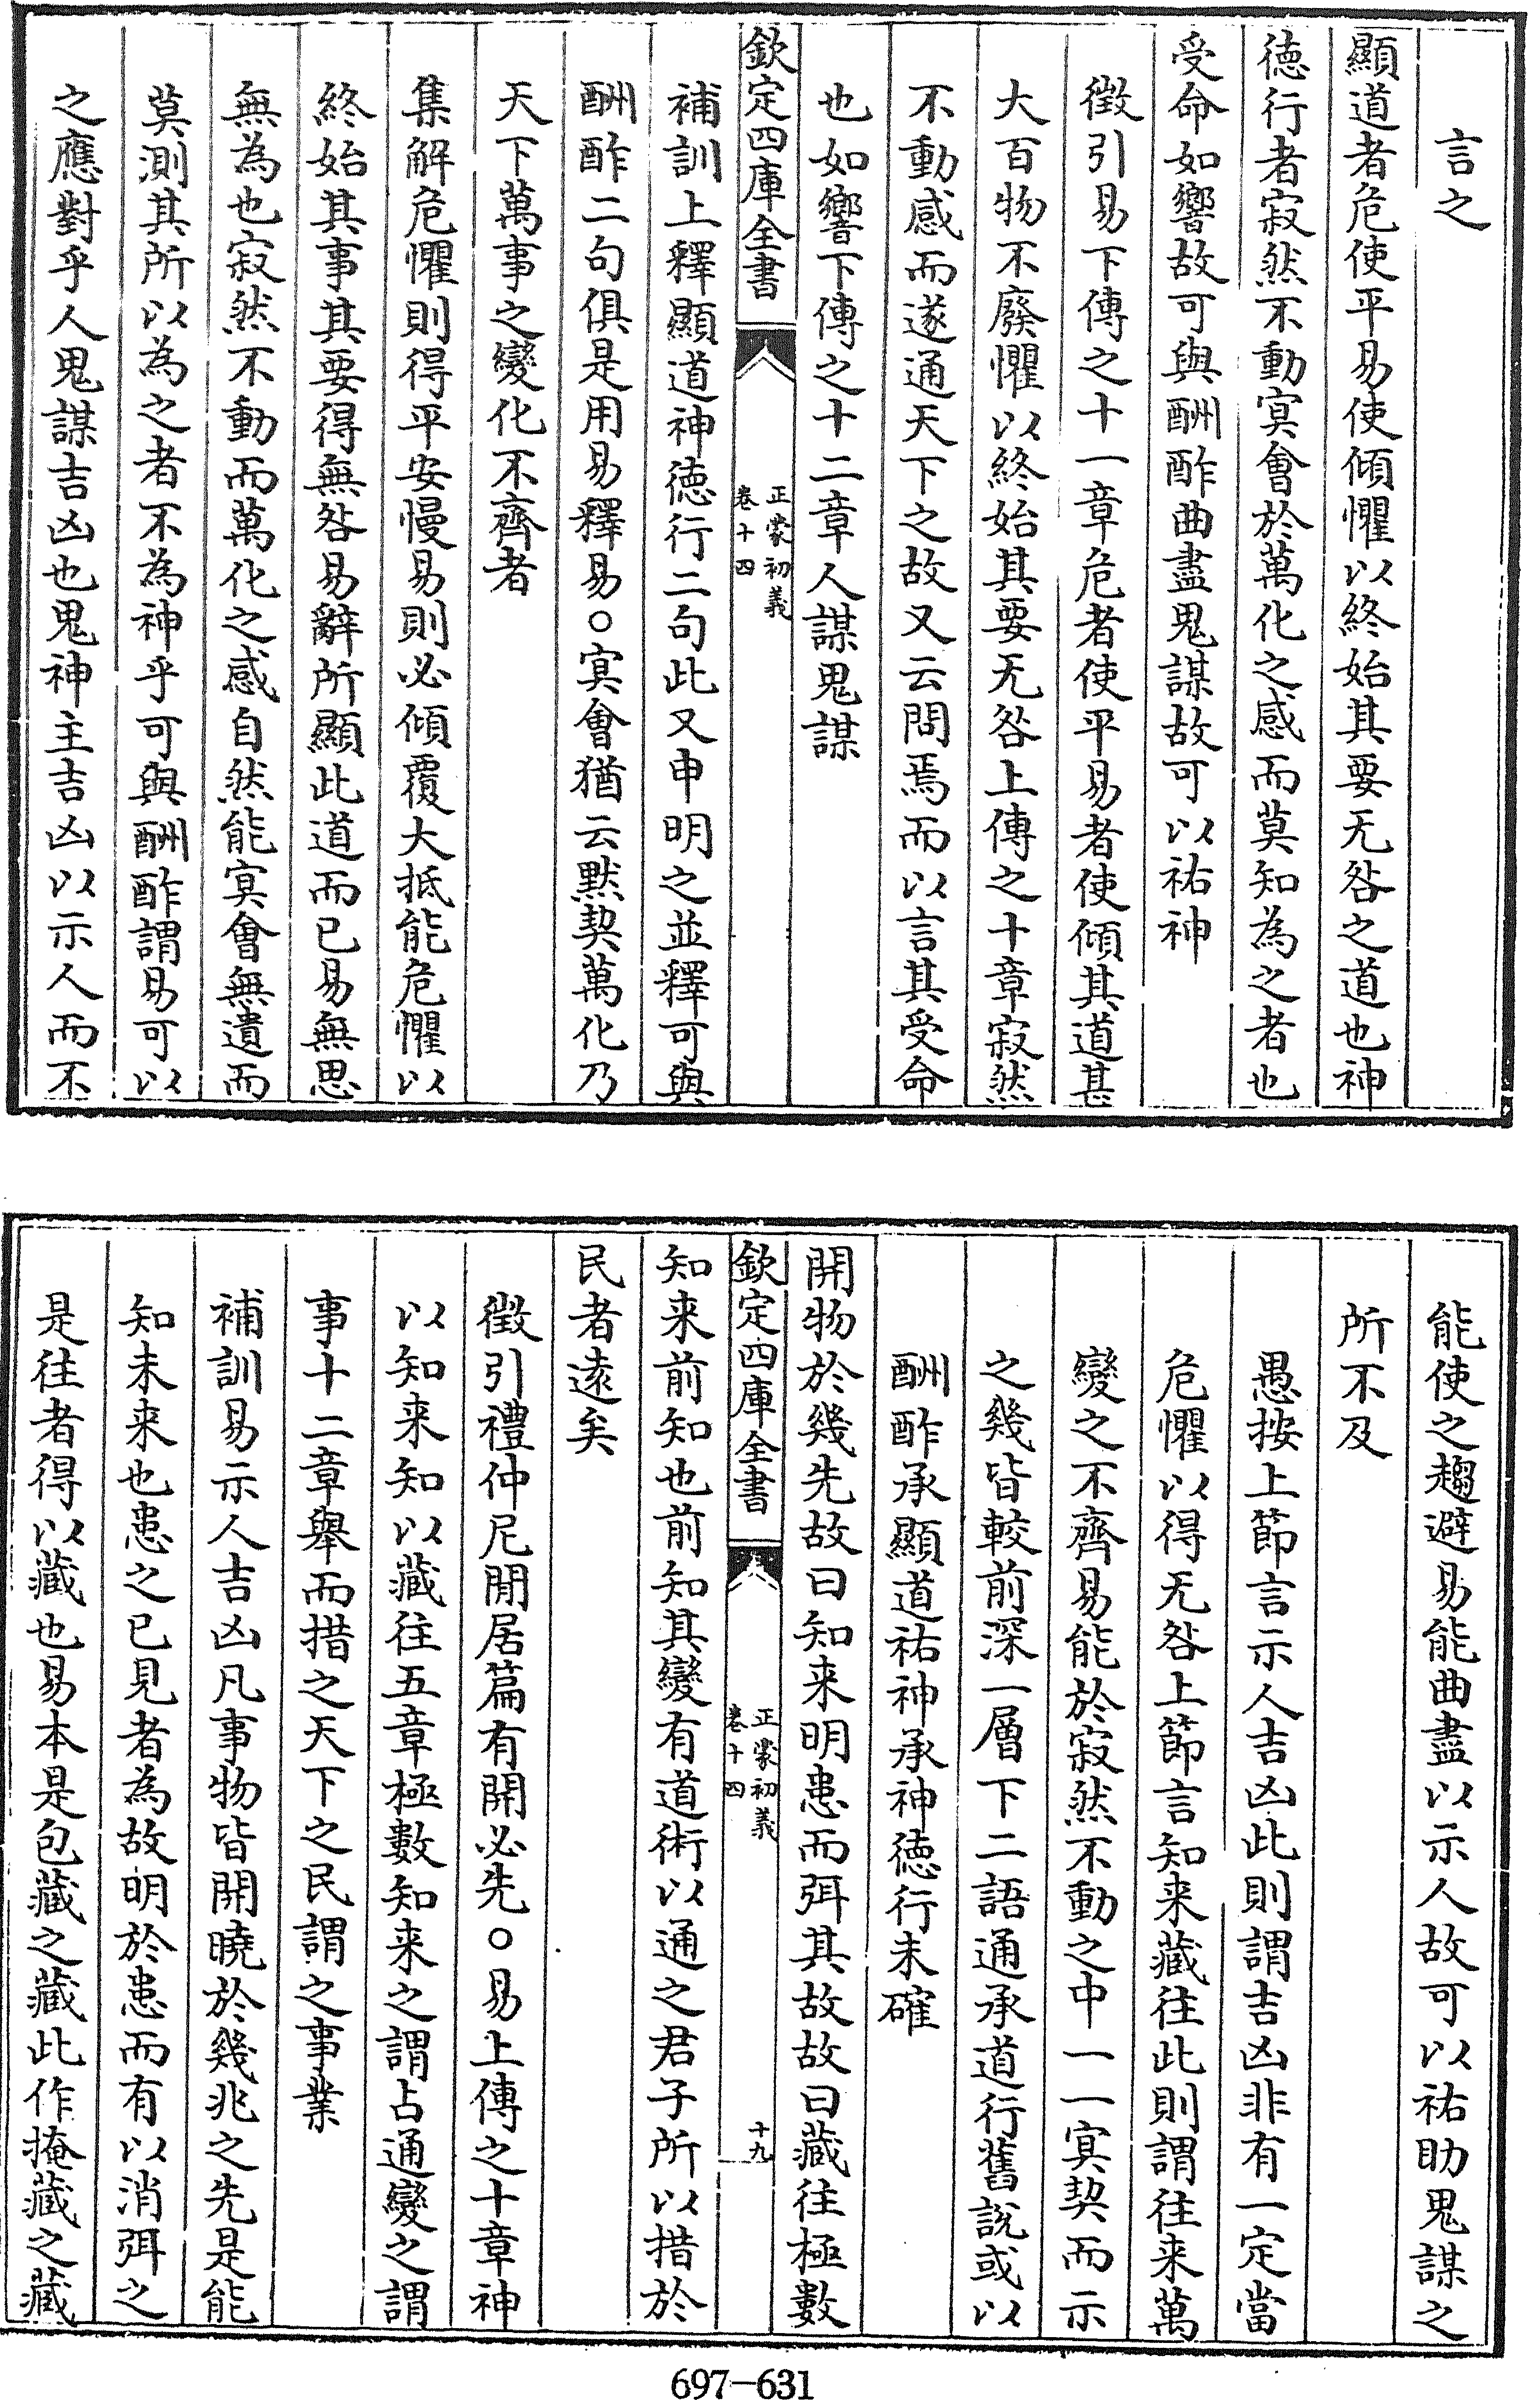 言之
顯道者危使平易使傾懼以終始其要无咎之道也神
徳行者寂然不動寞會於萬化之感而莫知為之者也
受命如響故可與酬酢曲盡鬼謀故可以祐神
徴引易下傳之十一章危者使平易者使傾其道甚
大百物不廢懼以終始其要无咎上傳之十章寂然
不動感而遂通天下之故又云問焉而以言其受命
也如響下傳之十二章人謀鬼謀
欽定四庫全書
正蒙初義
卷十四
補訓上釋顯道神徳行二句此又申明之並釋可與
酬酢二句俱是用易釋易○寞會猶云黙契萬化乃
天下萬事之變化不齊者
集解危懼則得平安慢易則必傾覆大抵能危懼以
終始其事其要得無咎易辭所顯此道而已易無思
無為也寂然不動而萬化之感自然能寞會無遺而
莫測其所以為之者不為神乎可與酬酢謂易可以
之應對乎人鬼謀吉凶也鬼神主吉凶以示人而不
能使之趨避易能曲盡以示人故可以祐助鬼謀之
所不及
愚按上節言示人吉凶此則謂吉凶非有一定當
危懼以得无咎上節言知来藏往此則謂往来萬
變之不齊易能於寂然不動之中一一寞契而示
之幾皆較前深一層下二語通承道行舊說或以
酬酢承顯道祐神承神徳行未確
開物於幾先故曰知来明患而弭其故故曰藏往極數
欽定四庫全書
正蒙初義
卷十四
十九
知来前知也前知其變有道術以通之君子所以措於
民者逺矣
徴引禮仲尼閒居篇有開必先○易上傳之十章神
以知来知以藏往五章極數知来之謂占通變之謂
事十二章舉而措之天下之民謂之事業
補訓易示人吉凶凡事物皆開曉於幾兆之先是能
知未来也患之已見者為故明於患而有以消弭之
是往者得以藏也易本是包藏之藏此作掩藏之藏
697-631